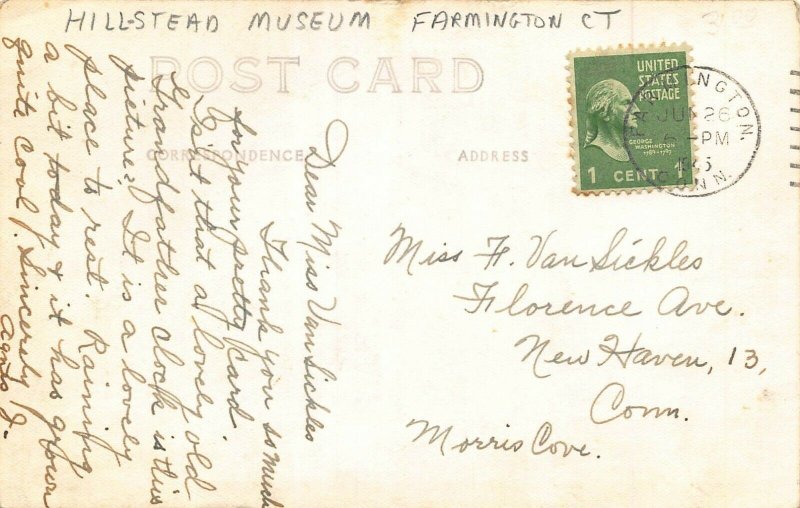 HILL-STEAD MUSEUM FARMINGTON CT
POST CARD
CORRESPONDENCE
ADDRESS
UNITED
STATES
POSTAGE
GEORGE
WASHINGTON
1789-1797
1 CENT 1
FARMINGTON,
JUN 26
PM
1945
CONN.
Dear Miss Van Sickles
Thank you so much
for your pretty card.
Isn't that a lovely old
Grandfather clock in this
picture? It is a lovely
place to rest. Raining
a bit today & it has grown
quite cool. Sincerely
Agnes J.
Miss F. Van Sickles
Florence Ave.
New Haven, 13,
Conn.
Morris Cove.